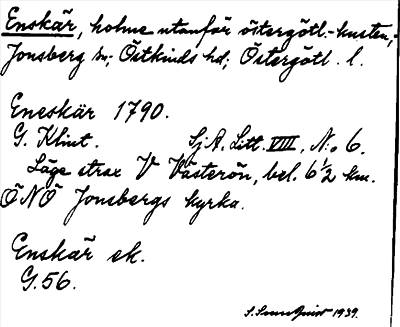 Enskär, holme utanför östergötl.-kusten,
Jonsberg sn; Östkinds hd; Östergötl. l.
Eneskär 1790.
G. Klint. Sj A. Litt. VIII, N:o 6.
Läge strax V Västerön, bel. 6 1/2 km.
ÖNÖ Jonsbergs kyrka.
Enskär ek.
G. 56.
1939.